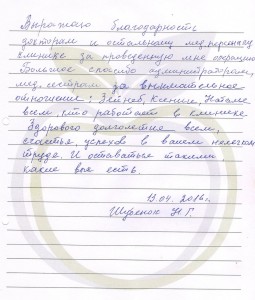 Выражаю благодарность
докторам и остальному мед. персоналу
клинике за проведенную мне операцию
Большое спасибо администраторам,
мед. сестрам за внимательное
отношение: Ксении, Наталье
всем, кто работает в клинике
Здорового долголетия всем,
счастья, успехов в вашем нелегком
труде. И оставайтесь такими
какие вы есть.
13.04.2016г.
Н.Г.